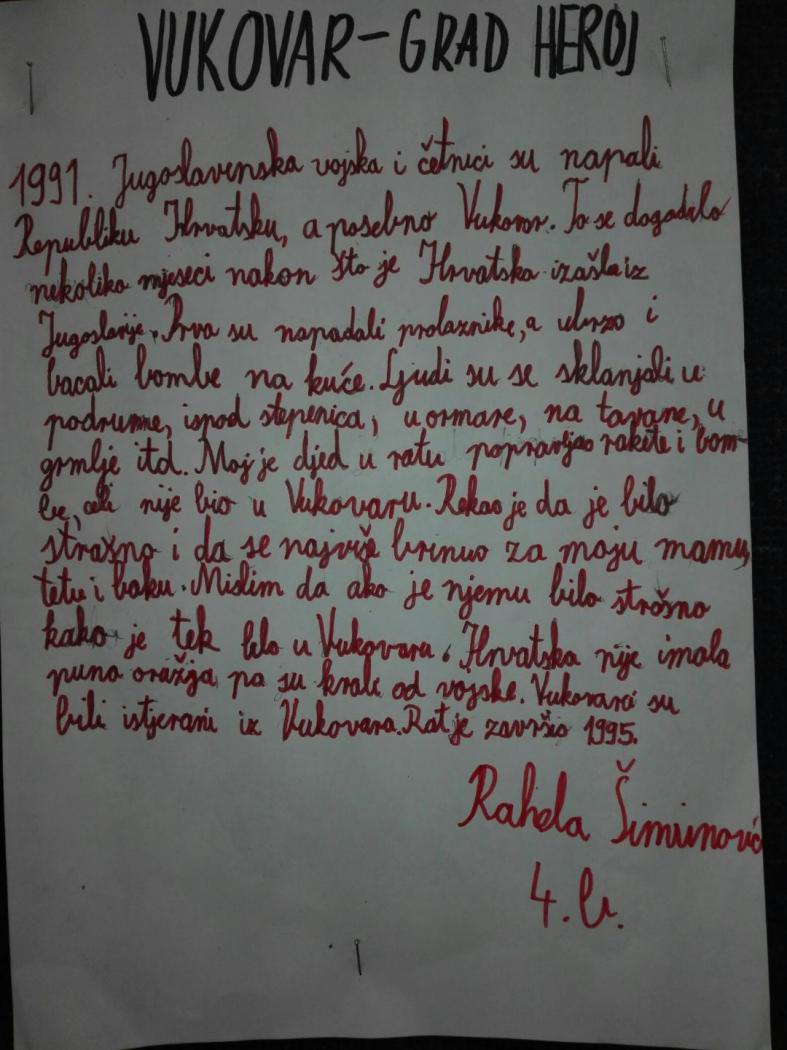 VUKOVAR - GRAD HEROJ
1991. Jugoslavenska vojska i četnici su napali
Republiku Hrvatsku, a posebno Vukovar. To se događalo
nekoliko mjeseci nakon što je Hrvatska izašla iz
Jugoslavije. Prvo su napadali prolaznike, a ubrzo i
bacali bombe na kuće. Ljudi su se sklanjali u
podrume, ispod stepenica, u ormare, na tavane, u
grmlje itd. Moj je djed u ratu popravljao rakete i bom-
be, ali nije bio u Vukovaru. Rekao je da je bilo
strašno i da se najviše brinuo za moju mamu,
tetu i baku. Mislim da ako je njemu bilo strašno
kako je tek bilo u Vukovara. Hrvatska nije imala
puno oružja pa su krali od vojske. Vukovarci su
bili istjerani iz Vukovara. Rat je završio 1995.
Rahela Šimunović
4. b.